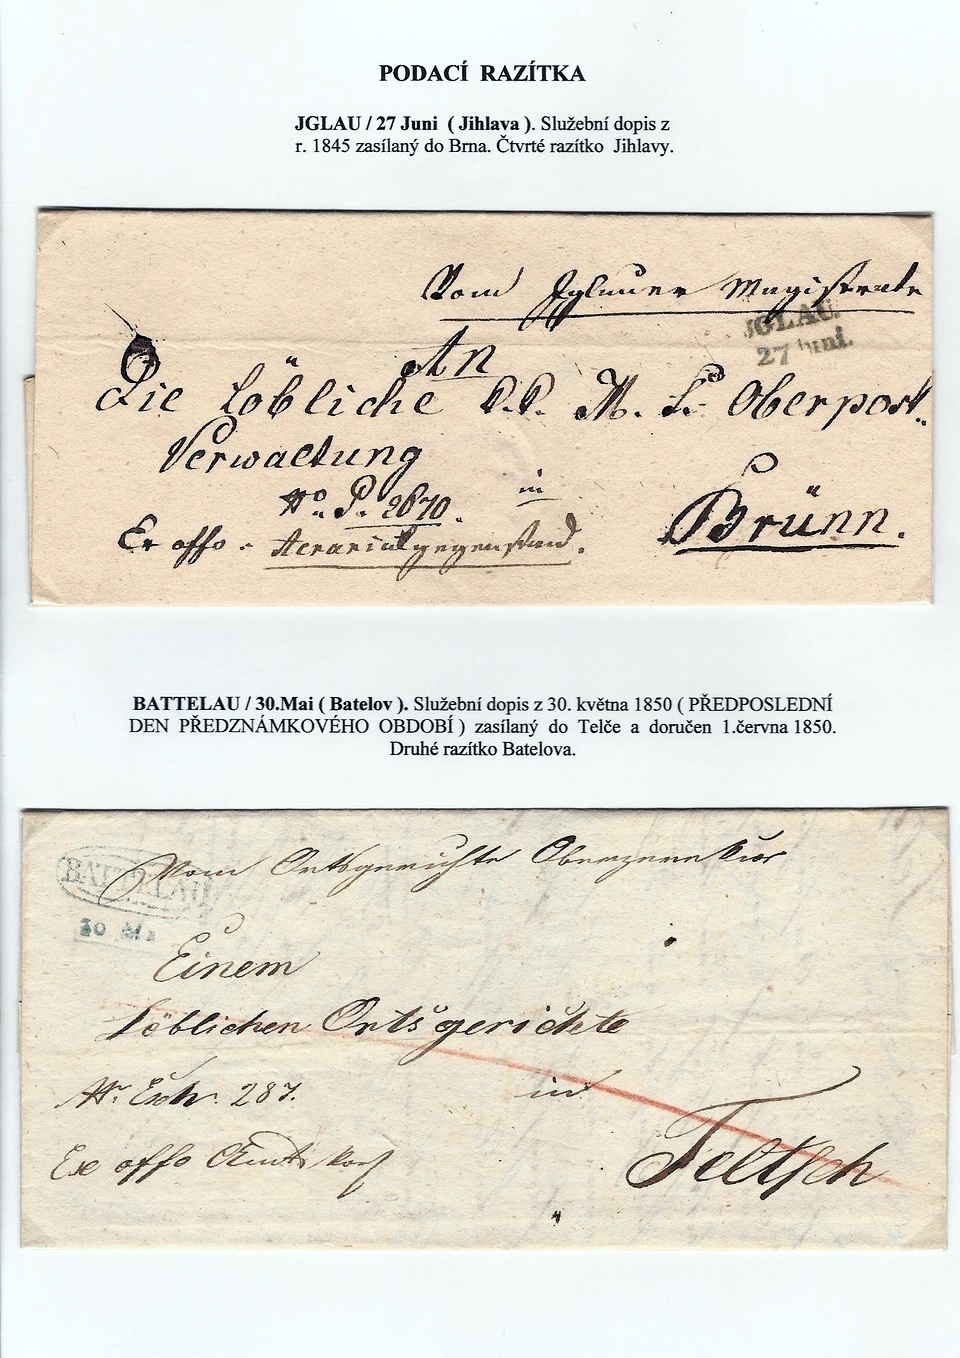 PODACÍ RAZÍTKA
JGLAU / 27 Juni ( Jihlava ). Služební dopis z
r. 1845 zasílaný do Brna. Čtvrté razítko Jihlavy.
Vom Iglauer Magistrate
JGLAU
27 Juni.
An
Die Löbliche k.k. M. S. Oberpost-
Verwaltung
No. P. 2670.
in
Ex offo - Aerarialgegenstand.
Brünn.
BATTELAU / 30.Mai ( Batelov ). Služební dopis z 30. května 1850 ( PŘEDPOSLEDNÍ
DEN PŘEDZNÁMKOVÉHO OBDOBÍ ) zasílaný do Telče a doručen 1.června 1850.
Druhé razítko Batelova.
BATTELAU
30 Ma
Vom Ortsgerichte
Einem
Löblichen Ortsgerichte
Nr. Exh. 287.
in
Ex offo
Teltsch